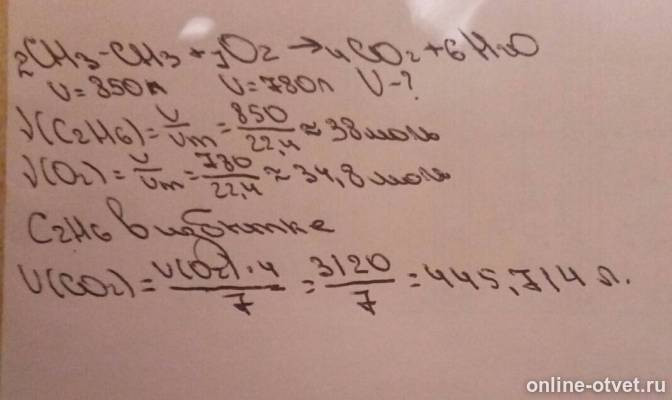 2CH3-CH3 + 7O2 → 4CO2 + 6H2O
V = 850л V = 780л V - ?
ν(C2H6) = V/Vm = 850/22,4 ≈ 38 моль
ν(O2) = V/Vm = 780/22,4 ≈ 34,8 моль
C2H6 в избытке
V(CO2) = V(O2)·4/7 = 3120/7 = 445,714 л.
online-otvet.ru